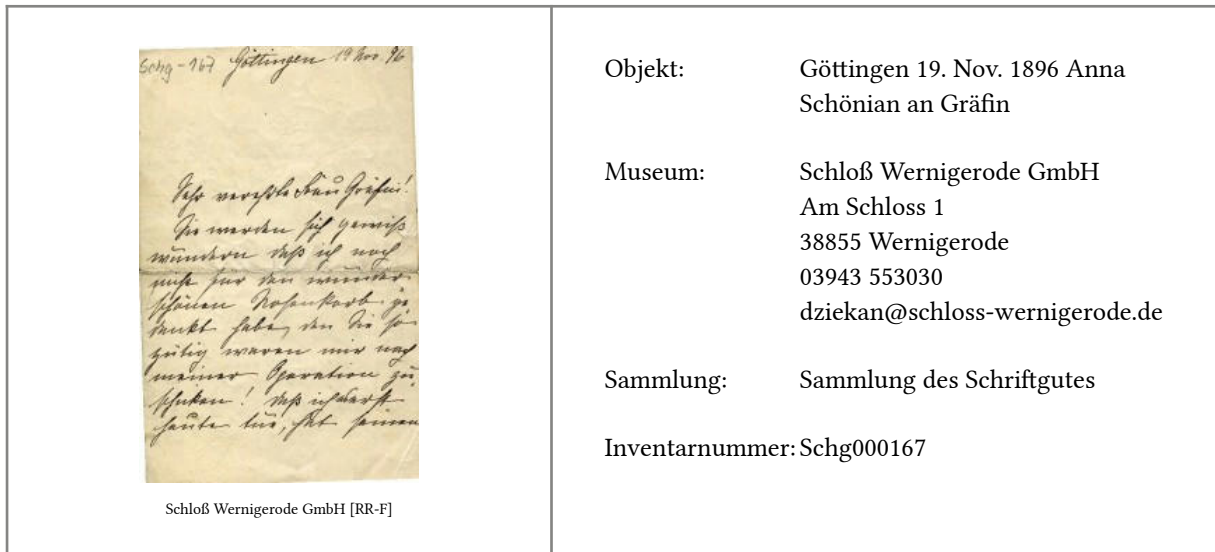 Schg - 167 Göttingen 19 Nov. 96
Sehr verehrte Frau Gräfin!
Sie werden sich gewiß
wundern daß ich noch
nicht für den wunder-
schönen Rosenkorb ge
dankt habe, den Sie so
gütig waren mir nach
meiner Operation zu
schicken! Daß ich erst
heute tue, hat seinen
Schloß Wernigerode GmbH [RR-F]
Objekt: Göttingen 19. Nov. 1896 Anna
Schönian an Gräfin
Museum: Schloß Wernigerode GmbH
Am Schloss 1
38855 Wernigerode
03943 553030
dziekan@schloss-wernigerode.de
Sammlung: Sammlung des Schriftgutes
Inventarnummer: Schg000167